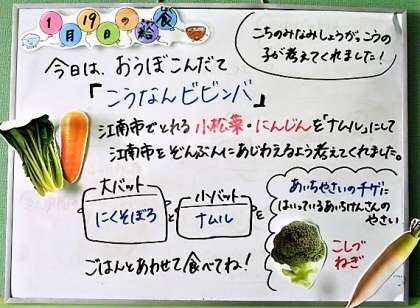 1月19日の給食
こちのみなみしょうがっこうの
子が考えてくれました!
今日は、おうぼこんだて
「こうなんビビンバ」
江南市でとれる小松菜・にんじんを「ナムル」にして
江南市をぞんぶんにあじわえるよう考えてくれました。
大バット
にくそぼろ
と
小バット
ナムル
を
ごはんとあわせて食べてね!
あいちやさいのチゲに
はいっているあいちけんさんの
やさい
こしづ
ねぎ